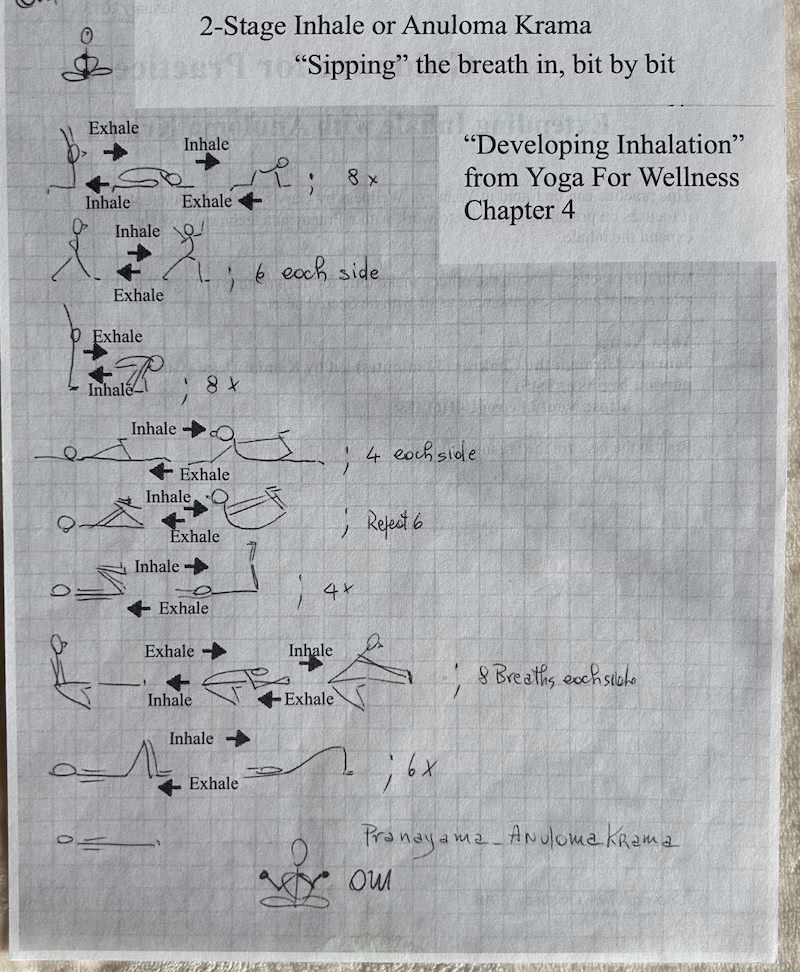 2-Stage Inhale or Anuloma Krama
“Sipping” the breath in, bit by bit
“Developing Inhalation”
from Yoga For Wellness
Chapter 4
Exhale
Inhale
Inhale
Exhale
; 8 x
Inhale
Exhale
; 6 each side
Exhale
Inhale
; 8 x
Inhale
Exhale
; 4 each side
Inhale
Exhale
; Repeat 6
Inhale
Exhale
; 4x
Exhale
Inhale
Inhale
Exhale
; 8 Breaths each side
Inhale
Exhale
; 6x
Pranayama - Anuloma Krama
OM